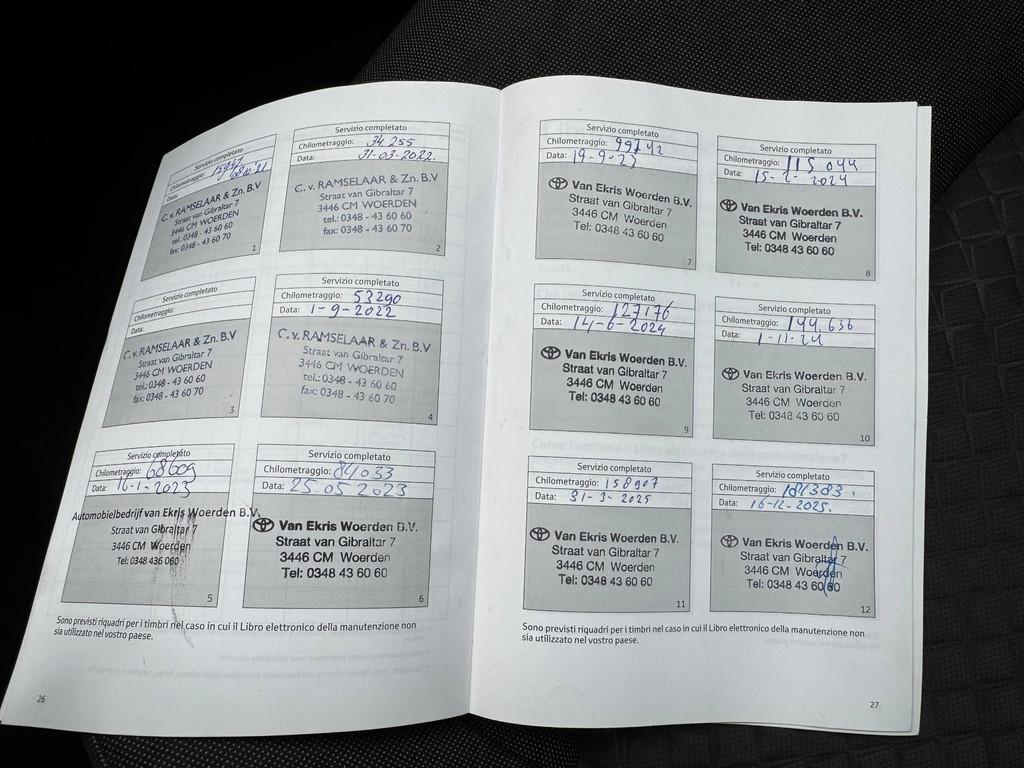 Servizio completato
Chilometraggio: 15947
Data: 08.10.'21
C. v. RAMSELAAR & Zn. B.V
Straat van Gibraltar 7
3446 CM WOERDEN
tel.: 0348 - 43 60 60
fax: 0348 - 43 60 70
1
Servizio completato
Chilometraggio: 34 255
Data: 31-03-2022.
C. v. RAMSELAAR & Zn. B.V
Straat van Gibraltar 7
3446 CM WOERDEN
tel.: 0348 - 43 60 60
fax: 0348 - 43 60 70
2
Servizio completato
Chilometraggio:
Data:
C. v. RAMSELAAR & Zn. B.V
Straat van Gibraltar 7
3446 CM WOERDEN
tel.: 0348 - 43 60 60
fax: 0348 - 43 60 70
3
Servizio completato
Chilometraggio: 53290
Data: 1-9-2022
C. v. RAMSELAAR & Zn. B.V
Straat van Gibraltar 7
3446 CM WOERDEN
tel.: 0348 - 43 60 60
fax: 0348 - 43 60 70
4
Servizio completato
Chilometraggio: 68609
Data: 16-1-2023
Automobielbedrijf van Ekris Woerden B.V.
Straat van Gibraltar 7
3446 CM Woerden
Tel: 0348 436 060
5
Servizio completato
Chilometraggio: 84033
Data: 25.05 2023
Van Ekris Woerden B.V.
Straat van Gibraltar 7
3446 CM Woerden
Tel: 0348 43 60 60
6
Sono previsti riquadri per i timbri nel caso in cui il Libro elettronico della manutenzione non
sia utilizzato nel vostro paese.
26
Servizio completato
Chilometraggio: 99742
Data: 19-9-23
Van Ekris Woerden B.V.
Straat van Gibraltar 7
3446 CM Woerden
Tel: 0348 43 60 60
7
Servizio completato
Chilometraggio: 115 044
Data: 15-2-2024
Van Ekris Woerden B.V.
Straat van Gibraltar 7
3446 CM Woerden
Tel: 0348 43 60 60
8
Servizio completato
Chilometraggio: 127176
Data: 14-6-2024
Van Ekris Woerden B.V.
Straat van Gibraltar 7
3446 CM Woerden
Tel: 0348 43 60 60
9
Servizio completato
Chilometraggio: 144.636
Data: 1-11-24
Van Ekris Woerden B.V.
Straat van Gibraltar 7
3446 CM Woerden
Tel: 0348 43 60 60
10
Servizio completato
Chilometraggio: 158907
Data: 31-3-2025
Van Ekris Woerden B.V.
Straat van Gibraltar 7
3446 CM Woerden
Tel: 0348 43 60 60
11
Servizio completato
Chilometraggio: 181383.
Data: 16-12-2025.
Van Ekris Woerden B.V.
Straat van Gibraltar 7
3446 CM Woerden
Tel: 0348 43 60 60
12
Sono previsti riquadri per i timbri nel caso in cui il Libro elettronico della manutenzione non
sia utilizzato nel vostro paese.
27